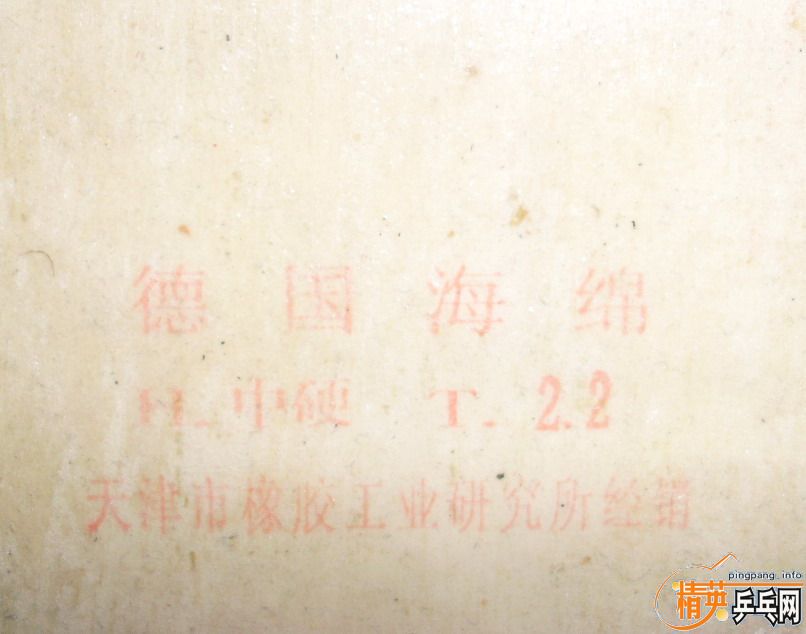 德国海绵
H_ 中硬 T_ 2.2
天津市橡胶工业研究所经销
pingpang.info
精英乒乓网